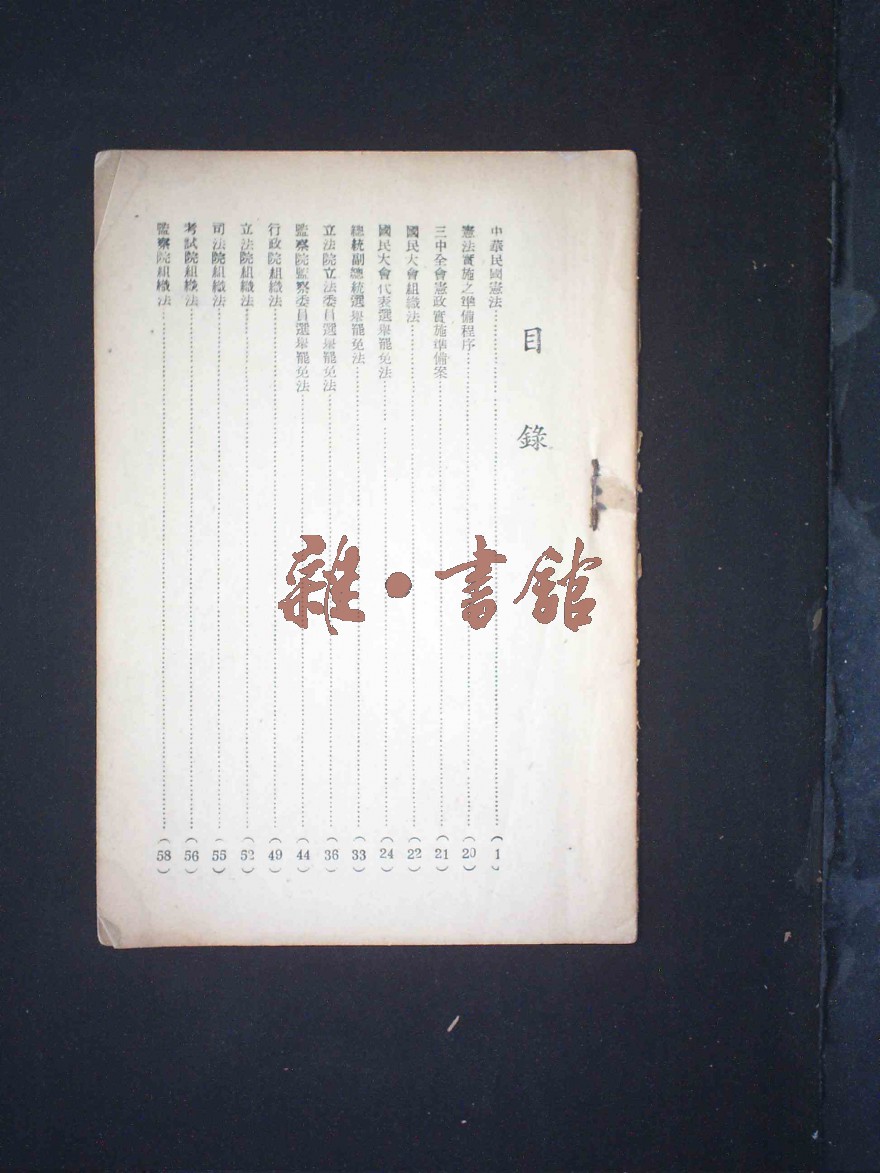 目錄
中華民國憲法(1)
憲法實施之準備程序(20)
三中全會憲政實施準備案(21)
國民大會組織法(22)
國民大會代表選舉罷免法(24)
總統副總統選舉罷免法(33)
立法院立法委員選舉罷免法(36)
監察院監察委員選舉罷免法(44)
行政院組織法(49)
立法院組織法(52)
司法院組織法(55)
考試院組織法(56)
監察院組織法(58)
雜·書館